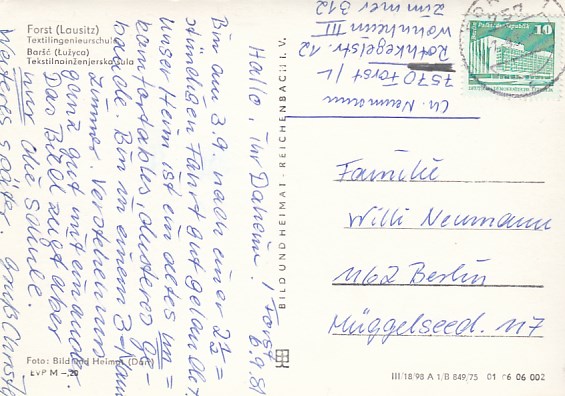 Forst (Lausitz)
Textilingenieurschule
Baršć (Łužyca)
Tekstilnoinženjerska šula
Hallo, ihr Daheim! Forst
6.9.81
Bin am 3.9. nach einer 2½ =
stündigen Fahrt gut gelandet.
Unser Heim ist ein altes un=
komfortables, düsteres Ge-
bäude. Bin in einem 3-Mann
Zimmer. Verstehen uns
ganz gut miteinander.
Das Bild zeigt aber
nur die Schule.
Weiteres später. Gruß Christa
Foto: Bild und Heimat (Darr)
EVP M –,20
BILD UND HEIMAT · REICHENBACH i. V.
Ch. Neumann
7570 Forst / L
Rothkegelstr. 12
Wohnheim III
Zimmer 312
10
Familie
Willi Neumann
1162 Berlin
Müggelseed. 117
III/18/98 A 1/B 849/75 01 06 06 002